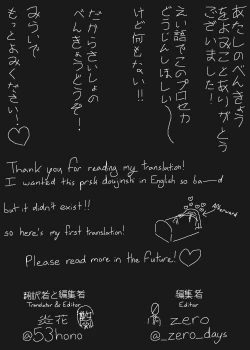 あたしのべんきょう
をよみことありがとう
ございました!
えい語でこのプロセカ
どうじんしほしい〜
けど何もない!!
だからさいしょの
べんきょうどうぞ!
みらいで
もっとよみください!♡
Thank you for reading my translation!
I wanted this prsk doujinshi in English so ba—d
but it didn't exist!!
so here's my first translation!
Please read more in the future!♡
Afterword
翻訳者と編集者
Translator & Editor
炎花
@53hono
編集者
Editor
zero
@_zero_days